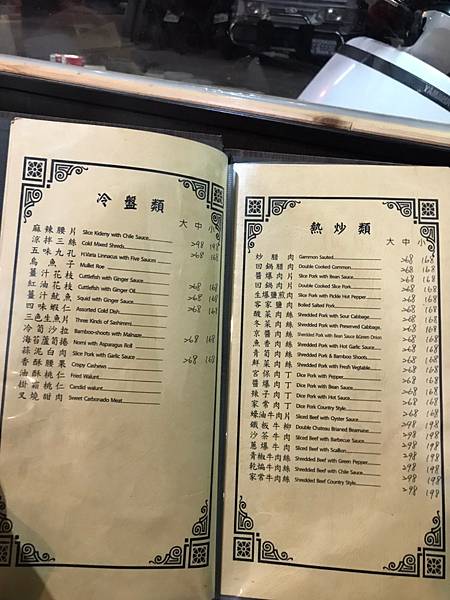 冷盤類
大 中 小
麻辣腰片 Slice Kideny with Chile Sauce
涼拌三絲 Cold Mixed Shreds 298 198
五味九孔 H.Varia Linnacus with Five Sauces 268 168
烏魚子 Mullet Roe
薑汁花枝 Cuttlefish with Ginger Sauce
紅油花枝 Cuttlefish with Ginger Oil
薑汁魷魚 Squid with Ginger Sauce
四味蝦仁 Assorted Cold Dish
三色生魚片 Three Kinds of Sashimmi
冷筍沙拉 Bamboo-shoots with Malnaze
海苔蘆筍捲 Nomi with Asparagus Roll 268 168
蒜泥白肉 Slice Pork with Garlic Sauce
香酥腰果 Crispy Cashews 268 168
油酥桃仁 Fried Walunt
掛霜桃仁 Candid walunt
叉燒甜肉 Sweet Carbonado Meat
熱炒類
大 中 小
炒腊肉 Gammon Sauted
回鍋腊肉 Double Cooked Gammon 268 168
醬爆肉片 Slice Pork with Bean Sauce 268 168
回鍋肉片 Double Cooked Slice Pork 268 168
生爆鹽煎肉 Slice Pork with Pickle Hot Pepper 268 168
客家鹹肉 Boiled Salted Pork 268 168
酸菜肉絲 Shredded Pork with Sour Cabbage 268 168
冬菜肉絲 Shredded Pork with Preserved Cabbage 268 168
京醬肉絲 Shredded Pork with Bean Sauce &Green Onion 268 168
魚香肉絲 Shredded Pork with Hot Garlic Sauce 268 168
青筍肉絲 Shredded Pork & Bamboo Shoots 268 168
鮮菜肉絲 Shredded Pork with Fresh Vegtable 268 168
宮保肉丁 Dice Pork with Pepper 268 168
醬爆肉丁 Dice Pork with Bean Sauce 268 168
辣子肉丁 Dice Pork with Hot Sauce 268 168
家常肉丁 Dice Pork Country Style 268 168
蠔油牛肉片 Sliced Beef with Oyster Sauce 268 168
鐵板牛柳 Double Chateau Brianed Bearnaine 298 198
沙茶牛肉 Sliced Beef with Barbecue Sauce 298 198
蔥爆牛肉 Sliced Beef with Scallion 298 198
青椒牛肉絲 Shredded Beef with Green Pepper 298 198
乾煸牛肉絲 Shredded Beef with Chile Sauce 298 198
家常牛肉絲 Shredded Beef Country Style 298 198
298 198